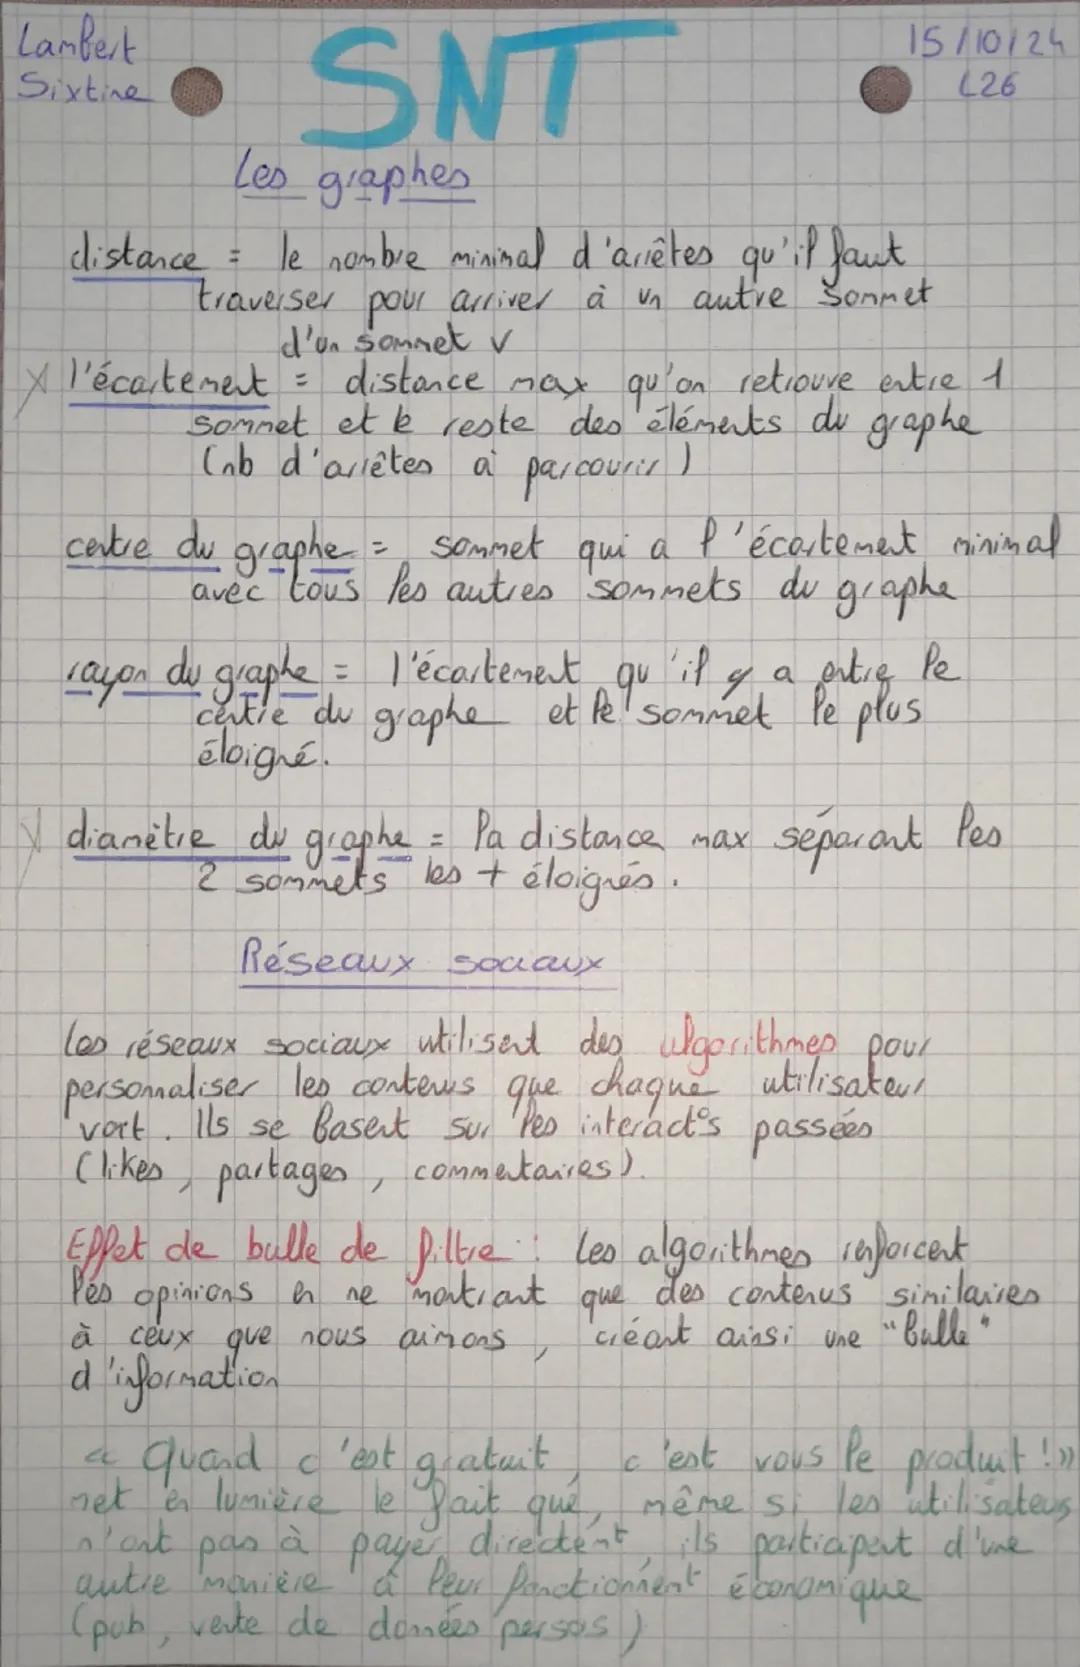 Lambert
Sixtine
SNT
15/10/24
L26
Les graphes
distance = le nombre minimal d'arrêtes qu'il faut
traverser pour arriver à un autre sommet
d'un sommet v
X l'écartement = distance max qu'on retrouve entre 1
sommet et le reste des éléments du graphe
(nb d'arrêtes à parcourir)
centre du graphe = sommet qui a l'écartement minimal
avec tous les autres sommets du graphe
rayon du graphe = l'écartement qu'il y a entre le
centre du graphe et le sommet le plus
éloigné.
X diamètre du graphe = la distance max séparant les
2 sommets les + éloignés.
Réseaux sociaux
Les réseaux sociaux utilisent des algorithmes pour
personnaliser les contenus que chaque utilisateur
voit. Ils se basent sur les interact°s passées
(likes, partages, commentaires).
Effet de bulle de filtre : Les algorithmes renforcent
les opinions en ne montrant que des contenus similaires
à ceux que nous aimons, créant ainsi une "bulle"
d'information
« Quand c'est gratuit, c'est vous le produit ! »
met en lumière le fait que, même si les utilisateurs
n'ont pas à payer directent, ils participent d'une
autre manière à leur fonctionnent économique
(pub, vente de données persos)